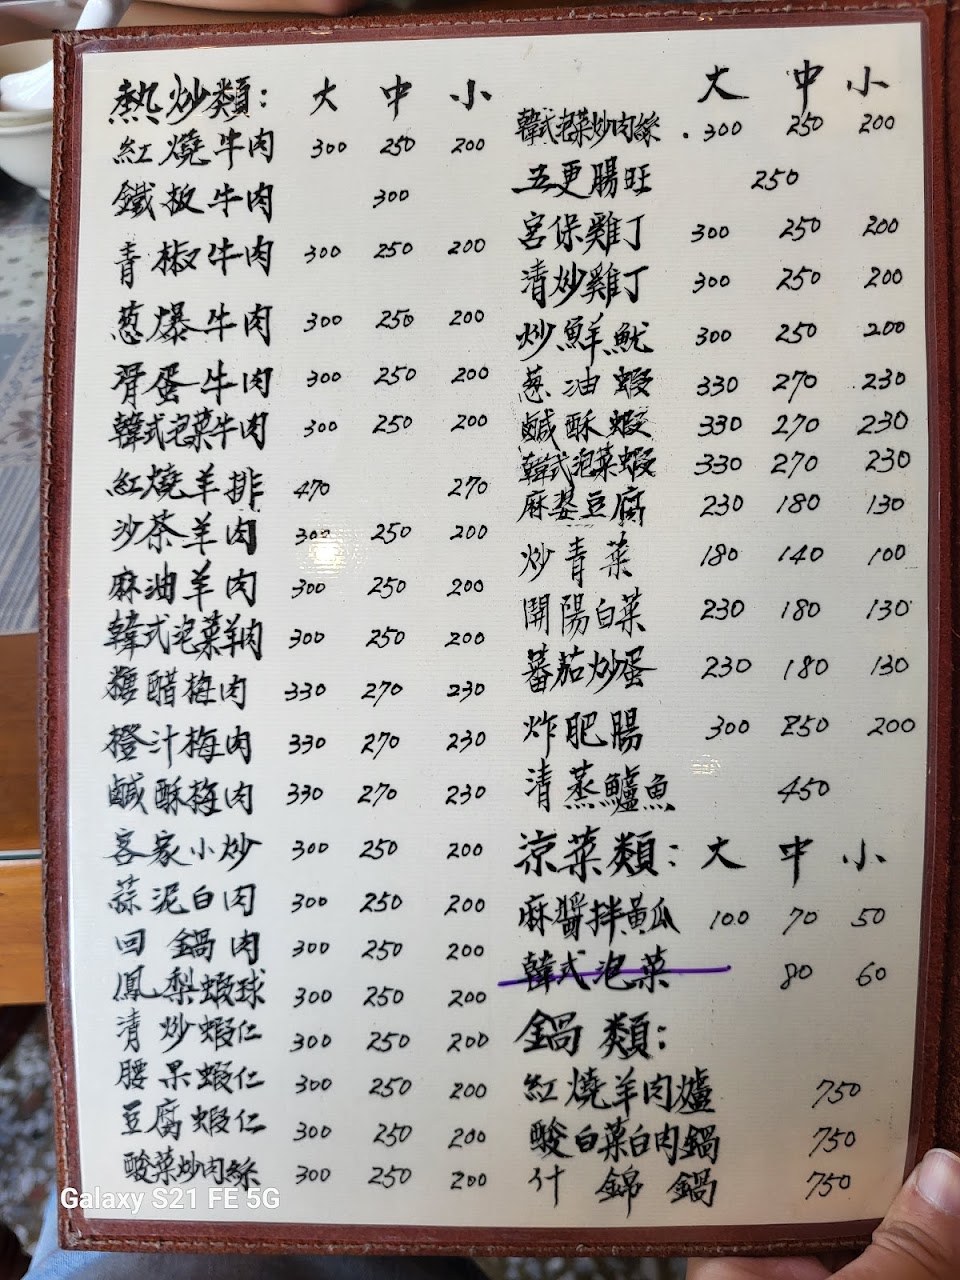 熱炒類: 大 中 小
紅燒牛肉 300 250 200
鐵板牛肉 300
青椒牛肉 300 250 200
蔥爆牛肉 300 250 200
滑蛋牛肉 300 250 200
韓式泡菜牛肉 300 250 200
紅燒羊排 470 270
沙茶羊肉 300 250 200
麻油羊肉 300 250 200
韓式泡菜羊肉 300 250 200
糖醋梅肉 330 270 230
橙汁梅肉 330 270 230
鹹酥梅肉 330 270 230
客家小炒 300 250 200
蒜泥白肉 300 250 200
回鍋肉 300 250 200
鳳梨蝦球 300 250 200
清炒蝦仁 300 250 200
腰果蝦仁 300 250 200
豆腐蝦仁 300 250 200
酸菜炒肉絲 300 250 200
大 中 小
韓式泡菜炒肉絲 300 250 200
五更腸旺 250
宮保雞丁 300 250 200
清炒雞丁 300 250 200
炒鮮魷 300 250 200
蔥油蝦 330 270 230
鹹酥蝦 330 270 230
韓式泡菜蝦 330 270 230
麻婆豆腐 230 180 130
炒青菜 180 140 100
開陽白菜 230 180 130
蕃茄炒蛋 230 180 130
炸肥腸 300 250 200
清蒸鱸魚 450
涼菜類: 大 中 小
麻醬拌黃瓜 100 70 50
韓式泡菜 80 60
鍋類:
紅燒羊肉爐 750
酸白菜白肉鍋 750
什錦鍋 750
Galaxy S21 FE 5G